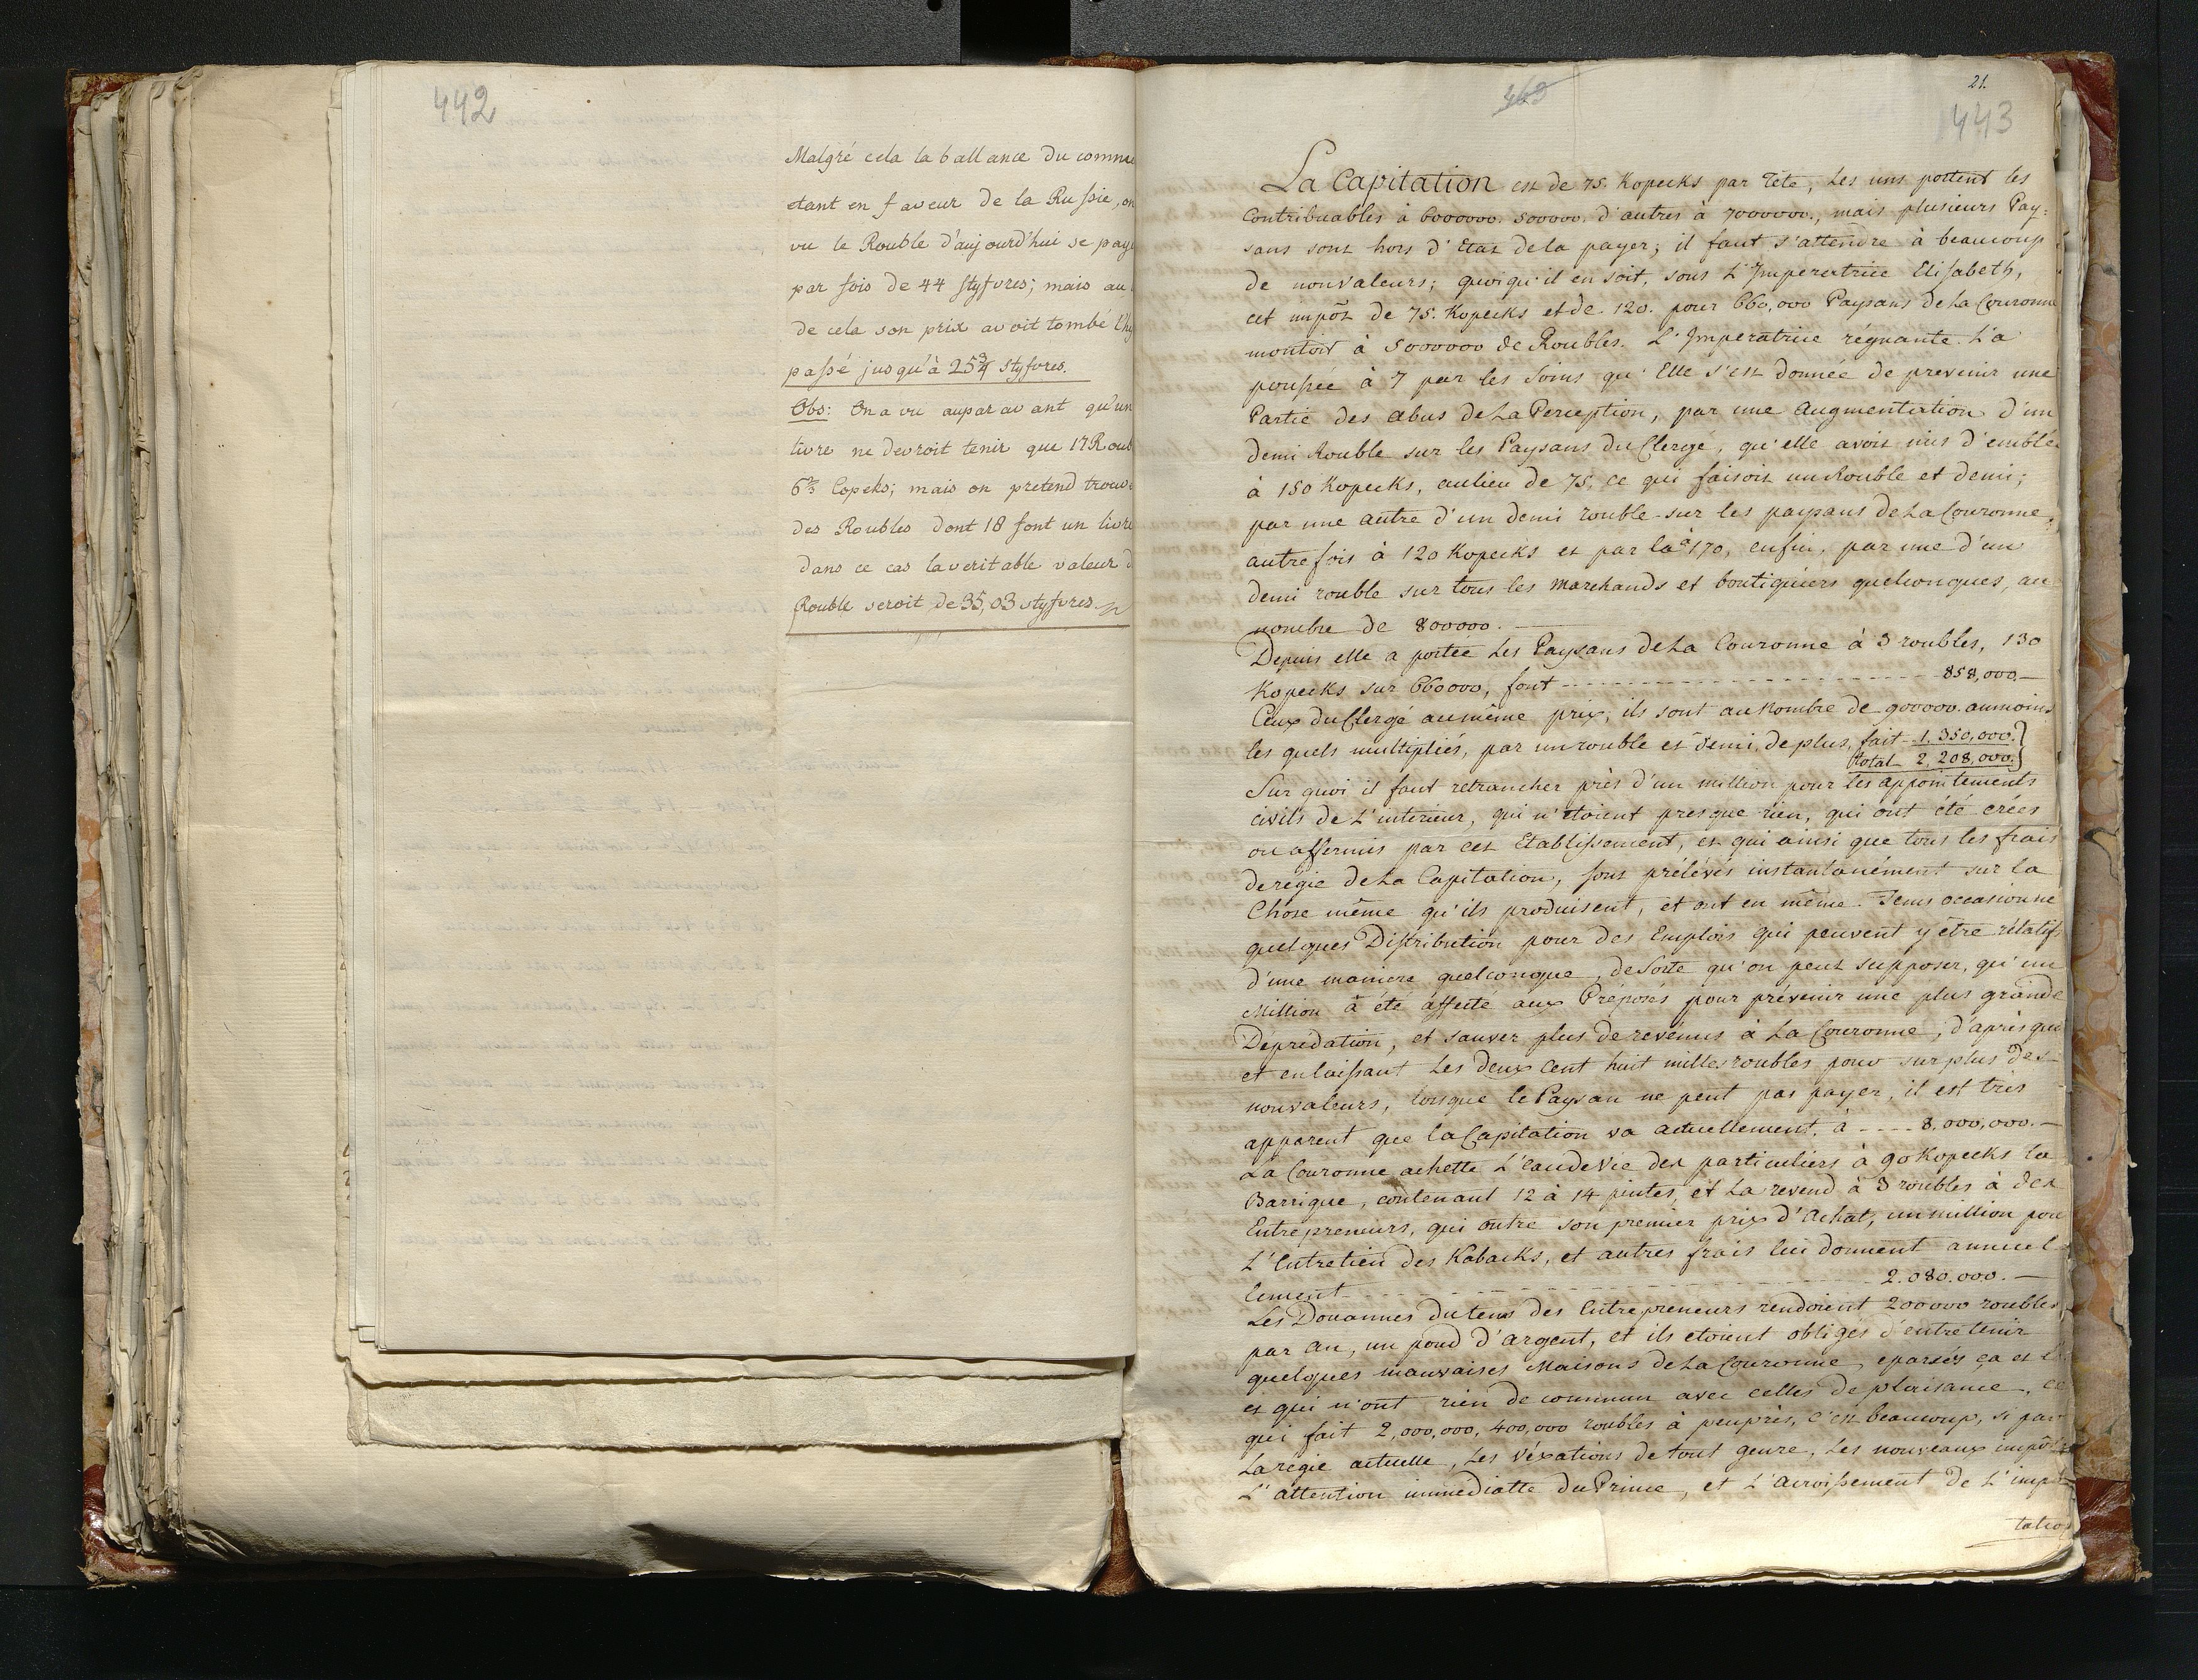 442
Malgré cela la ballance du comme
etant en faveur de la Russie, on
vu le Rouble d'aujourd'hui se paye
par fois de 44 Styfvres; mais au
de cela son prix avoit tombé l'hy
passé jusqu'à 25 3/4 Styfvres.
Obs: On a vu auparavant qu'un
livre ne devroit tenir que 17 Roub
6 2/3 Copeks; mais on pretend trouve
des Roubles dont 18 font un livre
dans ce cas la veritable valeur d
Rouble seroit de 35,03 styfvres.
469
21.
443
La Capitation est de 75. Kopecks par Tête, Les uns portent les
Contribuables à 6000000. 500000. d'autres à 7000000., mais plusieurs Pay:
sans sont hors d'Etat de la payer; il faut s'attendre à beaucoup
de nonvaleurs; quoiqu'il en soit, sous L'Imperatrice Elisabeth,
cet impôt de 75. Kopecks et de 120. pour 660,000 Paysans de La Couronne
montoit à 5000000 de Roubles. L'Imperatrice régnante L'a
poussée à 7 par les Soins qu'Elle s'est donnée de prevenir une
Partie des abus de La Perception, par une Augmentation d'un
demi Rouble sur les Paysans du Clergé, qu'elle avoit mis d'emblée
à 150 Kopecks, aulieu de 75, ce qui faisoit un Rouble et demi;
par une autre d'un demi rouble sur les paysans de La Couronne,
autrefois à 120 Kopecks et par là à 170, enfin, par une d'un
demi rouble sur tous les Marchands et boutiquiers quelconques, au
nombre de 800000.
Depuis elle a portée Les Paysans de La Couronne à 3 roubles, 130
Kopecks sur 660000, font - - - 858,000.—
Ceux du Clergé au même prix, ils sont au Nombre de 900000 aumoins
les quels multipliés, par un rouble et demi, de plus, fait 1.350,000.
total 2,208,000.
Sur quoi il faut retrancher près d'un million pour les appointements
civils de L'interieur, qui n'étoient presque rien, qui ont été crées
ou affermis par cet Etablissement, et qui ainsi que tous les frais
de régie de La Capitation, sont prélévés instantanément sur la
Chose même qu'ils produisent, et ont en même Tems occasionné
quelques Distribution pour des Emplois qui peuvent y être rélatifs
d'une maniere quelconque, de Sorte qu'on peut supposer, qu'un
Million à été affecté aux Préposés pour prévenir une plus grande
Dépredation, et sauver plus de revénus à La Couronne; d'après quoi
et en laissant Les deux Cent huit milles roubles pour surplus des
nonvaleurs, lorsque le Paysan ne peut pas payer, il est très
apparent que la Capitation va actuellement à - - - 8,000,000.—
La Couronne achette L'eau de Vie des particuliers à 90 Kopecks la
Barrique, contenant 12 à 14 pintes, et La revend à 3 roubles à des
Entrepreneurs, qui outre son premier prix d'Achat, un million pour
L'Entretien des Kabacks, et autres frais lui donnent annuel
lement - - - 2.080.000.—
Les Douannes du tems des Entrepreneurs rendoient 200000 roubles
par an, un poud d'argent, et ils étoient obligés d'entretenir
quelques mauvaises Maisons de La Couronne, eparsés ça et là
et qui n'ont rien de commun avec celles de plaisance, ce
qui fait 2,000,000, 400,000 roubles à peuprès, c'est beaucoup, si par
La régie actuelle, Les Véxations de tout genre, Les nouveaux impôts
L'attention immédiatte du Prince, et L'accroissement de L'impo
tation